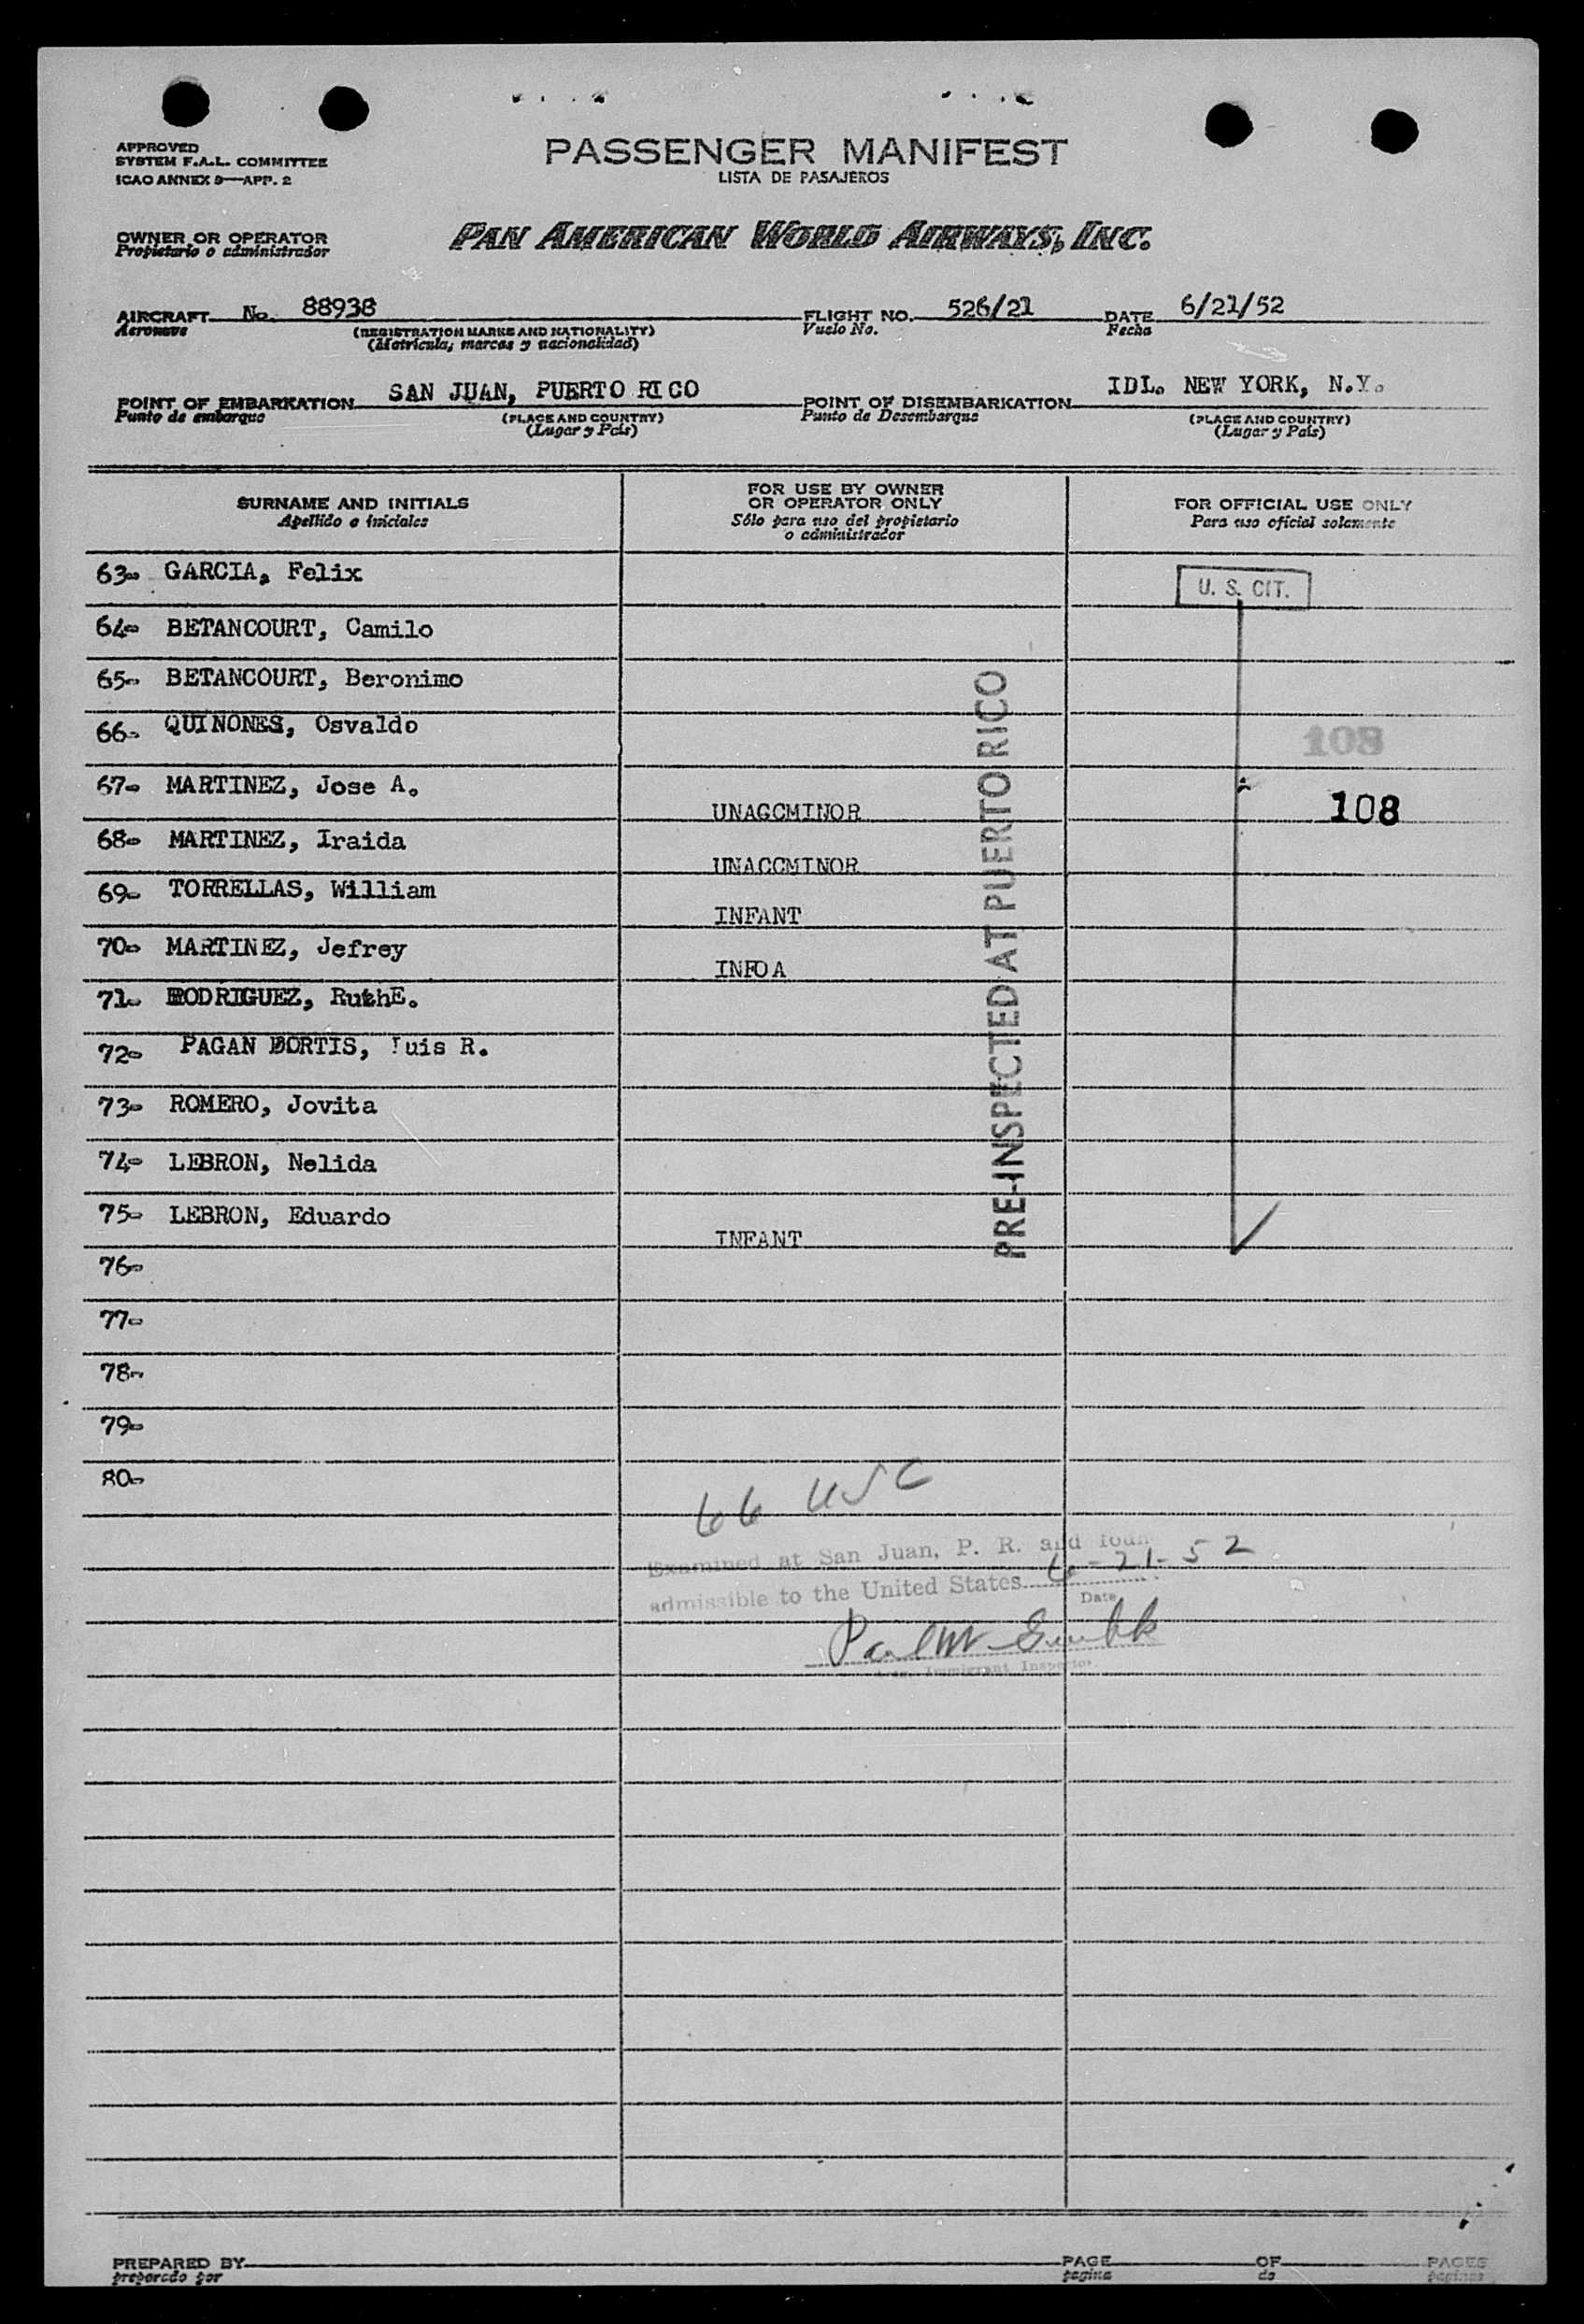 APPROVED
SYSTEM F.A.L. COMMITTEE
ICAO ANNEX 9—APP. 2
PASSENGER MANIFEST
LISTA DE PASAJEROS
OWNER OR OPERATOR
Propietario o administrador
PAN AMERICAN WORLD AIRWAYS, INC.
AIRCRAFT No. 88938
Aeronave
(REGISTRATION MARKS AND NATIONALITY)
(Matrícula, marcas y nacionalidad)
FLIGHT NO. 526/21
Vuelo No.
DATE 6/21/52
Fecha
POINT OF EMBARKATION SAN JUAN, PUERTO RICO
Punto de embarque
(PLACE AND COUNTRY)
(Lugar y País)
POINT OF DISEMBARKATION IDL. NEW YORK, N.Y.
Punto de Desembarque
(PLACE AND COUNTRY)
(Lugar y País)
SURNAME AND INITIALS
Apellido e iniciales
FOR USE BY OWNER
OR OPERATOR ONLY
Sólo para uso del propietario
o administrador
FOR OFFICIAL USE ONLY
Para uso oficial solamente
63- GARCIA, Felix
U. S. CIT.
64- BETANCOURT, Camilo
65- BETANCOURT, Beronimo
66- QUINONES, Osvaldo
108
67- MARTINEZ, Jose A. UNACCMINOR
108
68- MARTINEZ, Iraida UNACCMINOR
69- TORRELLAS, William INFANT
70- MARTINEZ, Jefrey INFOA
71- RODRIGUEZ, RuthE.
72- PAGAN, Luis R.
73- ROMERO, Jovita
74- LEBRON, Nelida
75- LEBRON, Eduardo INFANT
PRE-INSPECTED AT PUERTO RICO
76-
77-
78-
79-
80-
66 USC
Examined at San Juan, P. R. and found
admissible to the United States 6-21-52
Date
Immigrant Inspector
PREPARED BY
preparado por
PAGE OF PAGES
pagina de paginas